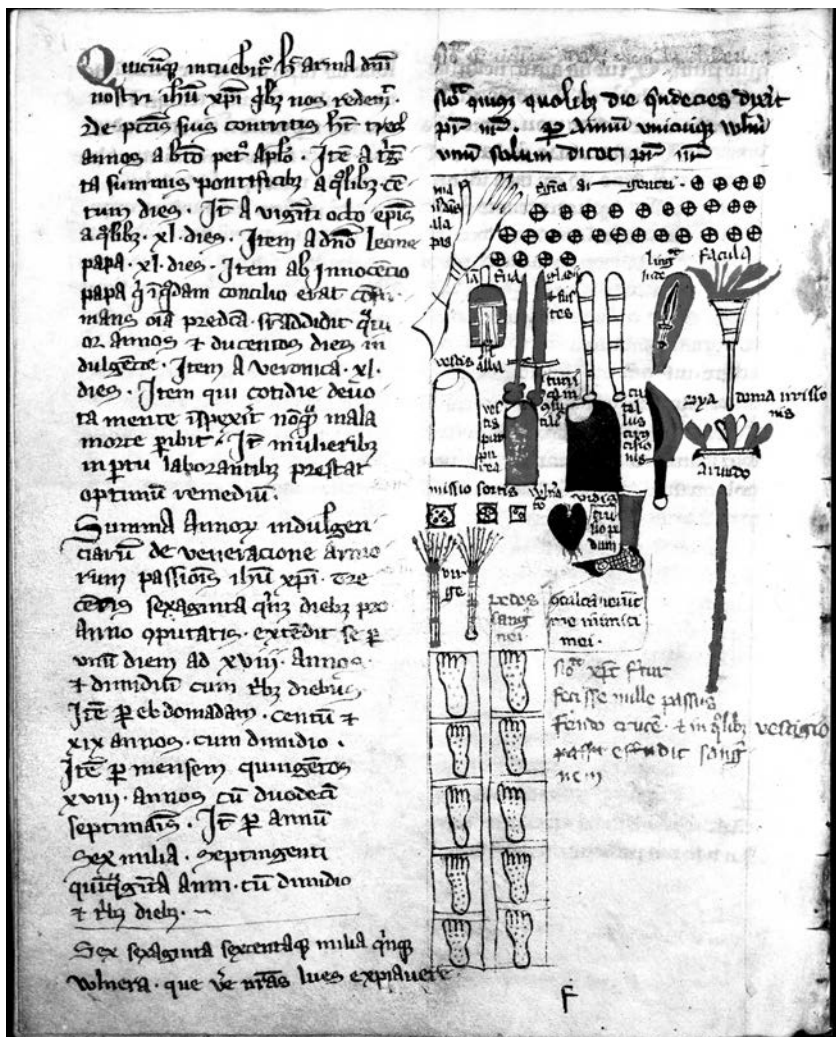 Quicūq intuebit' h' arma dn̄i
nostri ihu xpi q'bz nos redem̄.
De pcc̄is suis contritis h't tres
annos a bto pet° aplo. Itē a t'gī
ta summis pontificibz a q'libz cē
tum dies. It' A viginti octo ep̄is
a q'libz. xl. dies. Item a dn̄o leone
papa. xl. dies. Item ab Innocēcio
papa q' ī q'dam concilio erat cōfir
mans oīa predcā. sr̄addidit q'tu
or annos et ducentos dies in
dulgēcie. Item A veronica. xl.
dies. Item qui cotidie deuo
ta mente īspexit nōq'm mala
morte p̄ibit. It' mulieribz
in p̄tu laborantibz prestat
optimū remediū.
Summa Annorꝝ indulgen
ciarū de veneracione armo
rum passiōis ihu xpi. Tre
centis sexaginta q'nqz diebz pro
Anno oputatis. extēdit se p̄
vnū diem ad xviii. Annos
et dimidiū cum t'bz diebus
Itē p̄ ebdomadam. centū et
xix annos. cum dimidio.
Itē p̄ mensem quingētos
xviii. annos cū duodecī
septimāis. It' p̄ Annū
Sex milia. septingenti
anni. cū dimidio
et t'bz diebz.
Sex sexaginta sexcentaqz milia q'nqz
wlnera. que v'e nr̄as lues expiauere
quolibz die q'ndecies dixit
pr̄ nr̄. p̄ Annū vnicuiqz wln̄i
vnū solum dicet pr̄ nr̄
Facula
vestis alba
ves
tis pur
pu
rea
cul
tel
lus
circū
cisio
nis
Arundo
missio sortis
vir
ge
pedes
sang'
nei
me inimici
mei.
xp̄c f'tur
fecisse mille passus
ferēdo crucē. et in q'libz vestigio
passu effudit sang'
nem
f